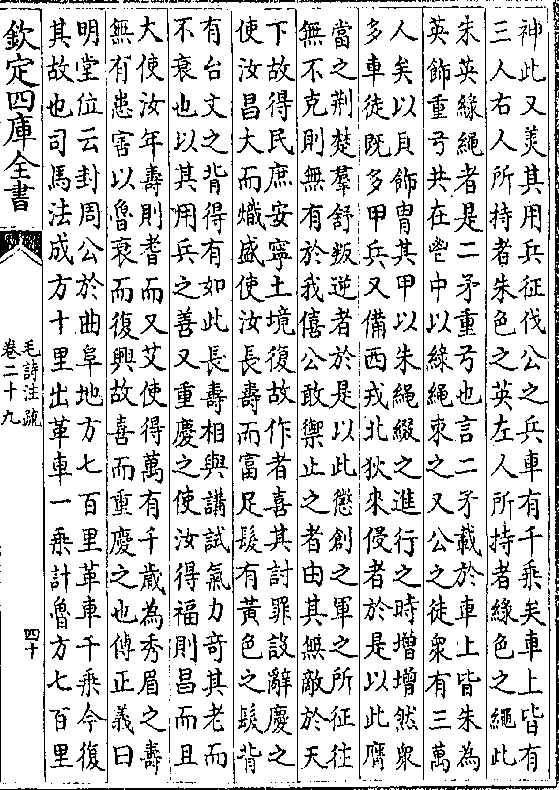 神此又美其用兵征伐公之兵車有千乘矣車上皆有
三人右人所持者朱色之英左人所持者綠色之繩此
朱英綠繩者是二矛重弓也言二矛載於車上皆朱為
英飾重弓共在鬯中以綠繩束之又公之徒衆有三萬
人矣以貝飾冑其甲以朱繩綴之進行之時增增然衆
多車徒既多甲兵又備西戎北狄來侵者於是以此膺
當之荆楚羣舒叛逆者於是以此懲創之軍之所征往
無不克則無有於我僖公敢禦止之者由其無敵於天
下故得民庶安寧土境復故作者喜其討罪設辭慶之
使汝昌大而熾盛使汝長壽而富足髮有黃色之髮背
有台文之背得有如此長壽相與講試氣力竒其老而
不衰也以其用兵之善又重慶之使汝得福則昌而且
大使汝年壽則耆而又艾使得萬有千歲為秀眉之壽
無有患害以魯衰而復興故喜而重慶之也傳正義曰
明堂位云封周公於曲阜地方七百里革車千乘今復
其故也司馬法成方十里出革車一乘計魯方七百里
欽定四庫全書
毛詩注疏
卷二十九
四十